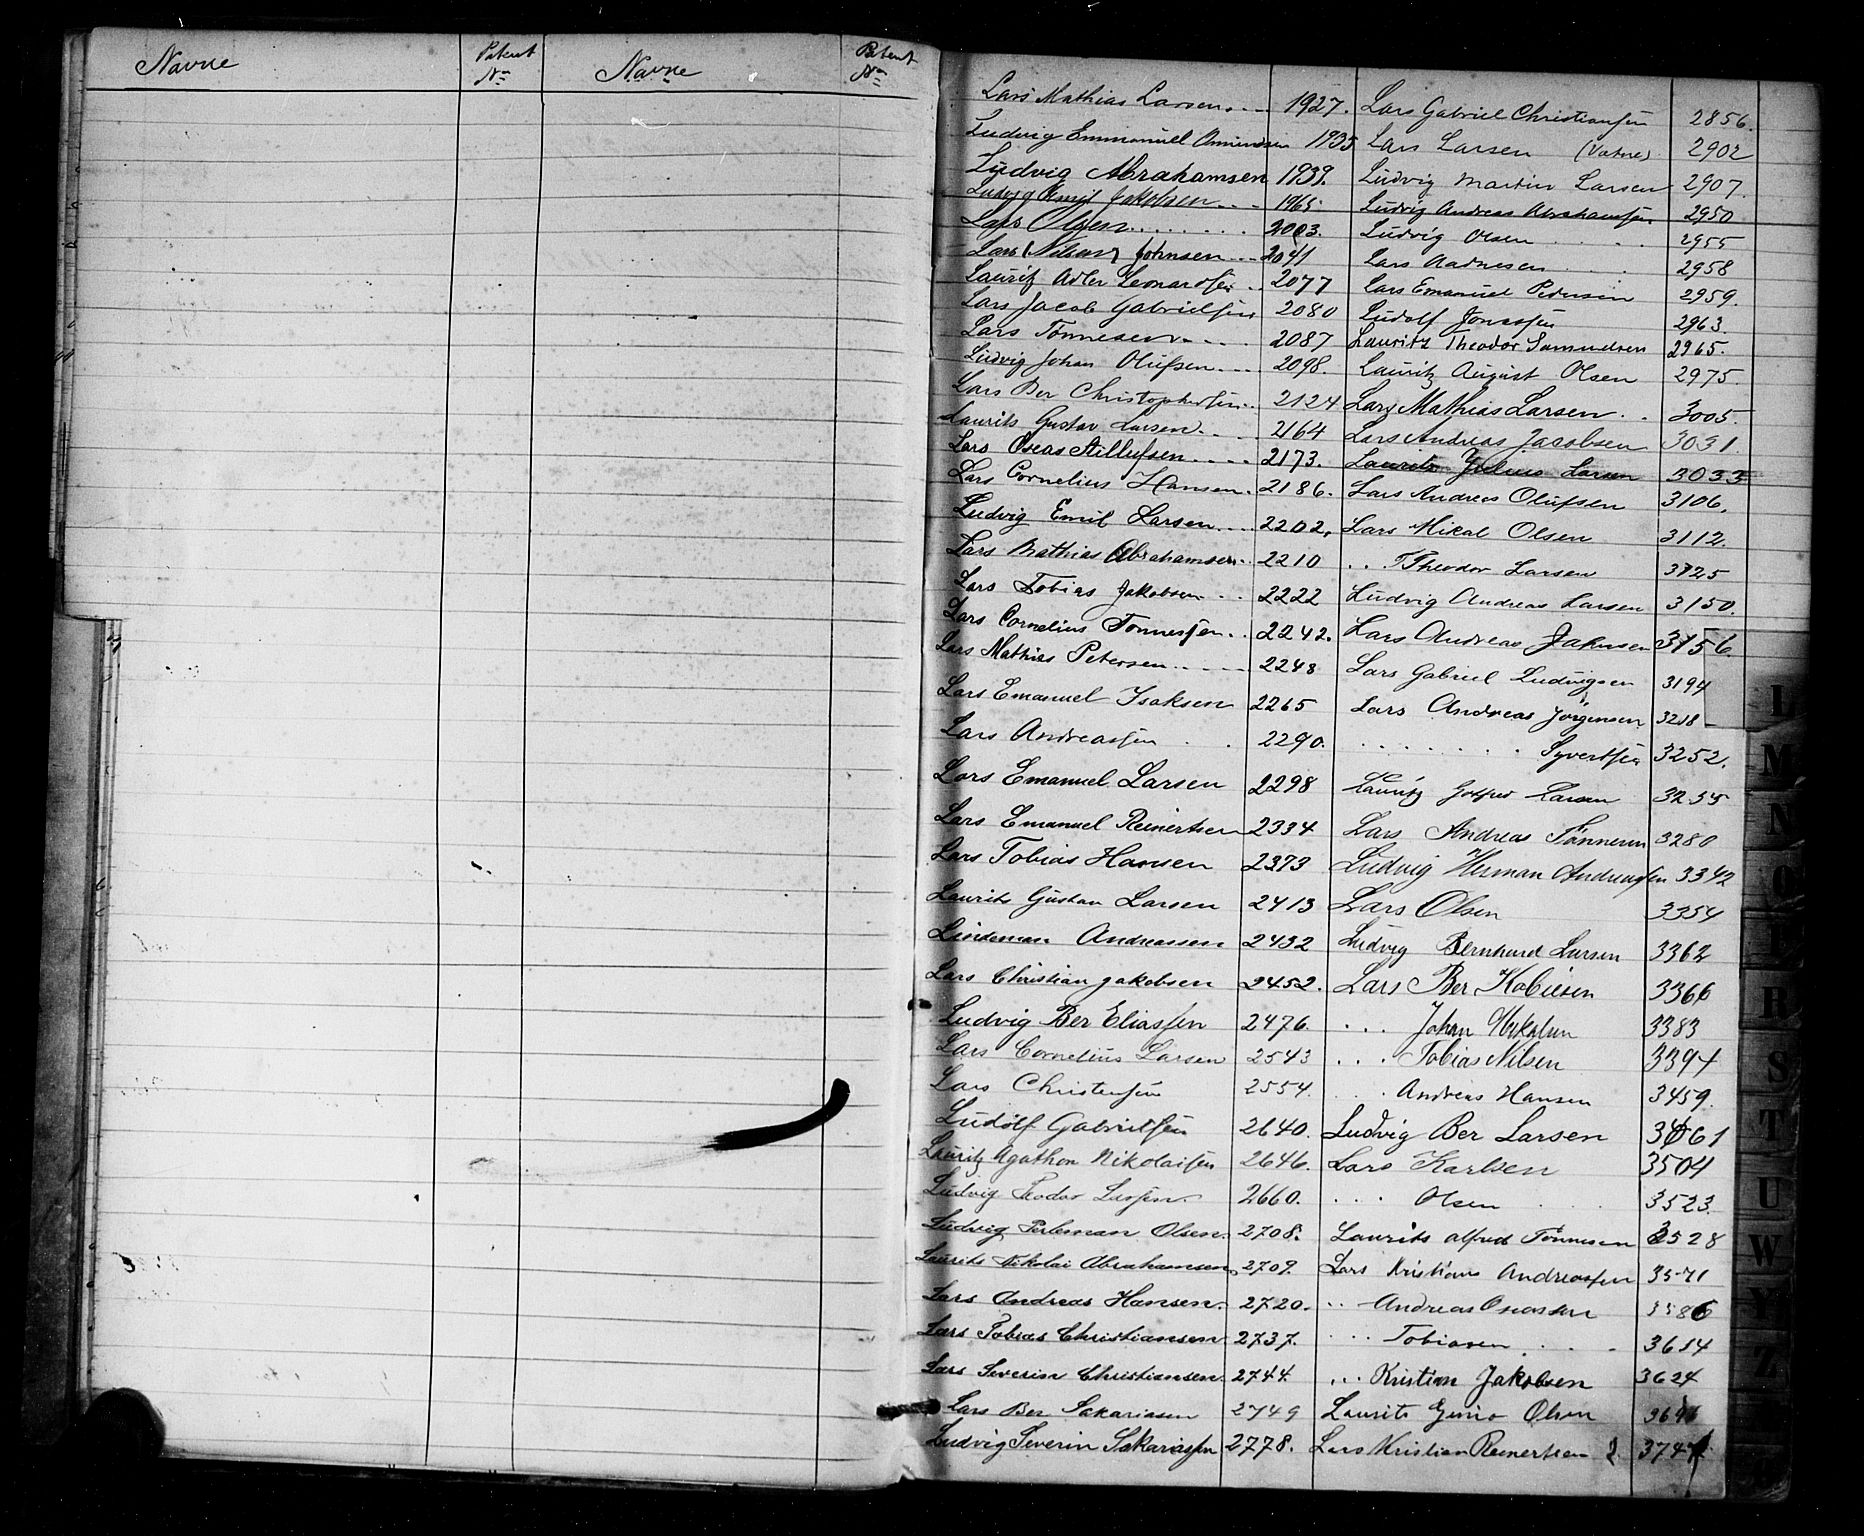 Navne Patent No Navne Patent No
Lars Mathias Larsen 1927. Lars Gabriel Christiansen 2856.
Ludvig Emmanuel 1935 Lars Larsen (Vatne) 2902
Ludvig Abrahamsen 1939. Ludvig Martin Larsen 2907.
Ludvig Jakobsen 1965 Ludvig Andreas Abrahamsen 2950
Lars Olsen 2003. Ludvig Olsen 2955
Lars (Nilsen) Johnsen 2041 Lars Aadnesen 2958
Lauritz Adler Leonardsen 2077 Lars Emanuel Pedersen 2959.
Lars Jacob Gabrielsen 2080 Ludolf Jonassen 2963.
Lars Tönnesen 2087 Lauritz Theodor Samuelsen 2965.
Ludvig Johan Olufsen 2098. Lauritz August Olsen 2975.
Lars Ber Christophersen 2124 Lars Mathias Larsen 3005.
Laurits Gustav Larsen 2164 Lars Andreas Jacobsen 3031.
Lars Oseas 2173. Laurits Julius Larsen 3033
Lars Cornelius Hansen 2186. Lars Andreas Olufsen 3106.
Ludvig Emil Larsen 2202. Lars Mikal Olsen 3112.
Lars Mathias Abrahamsen 2210 " Theodor Larsen 3125
Lars Tobias Jakobsen 2222 Ludvig Andreas Larsen 3150.
Lars Cornelius Tonnessen 2242. Lars Andreas 3156.
Lars Mathias Petersen 2248 Lars Gabriel Ludvigsen 3194
Lars Emanuel Isaksen 2265 Lars Andreas Jörgensen 3218
Lars Andreassen 2290. Syvertsen 3252.
Lars Emanuel Larsen 2298 Lauritz Larsen 3255
Lars Emanuel Reinertsen 2334 Lars Andreas Tönnesen 3280
Lars Tobias Hansen 2373 Ludvig Herman Andreassen 3342
Laurits Gustav Larsen 2413 Lars Olsen 3354
Lindeman Andreassen 2432 Ludvig Bernhard Larsen 3362
Lars Christian Jakobsen 2452. Lars Ber 3366
Ludvig Ber Eliassen 2476. . . . Johan Mikalsen 3383
Lars Cornelius Larsen 2543 . . . Tobias Nilsen 3394
Lars Christensen 2554. . . Andreas Hansen 3459.
Ludolf Gabrielsen 2640. Ludvig Ber Larsen 3461
Lauritz Agathon Nikolaisen 2646. Lars Karlsen 3504
Ludvig Teodor Larsen 2660. . . . Olsen 3523.
Ludvig Perleman Olsen. 2708. Laurits Alfred Tönnesen 3528
Laurits Nikolai Abrahamsen, 2709. Lars Kristians Andreassen 3571
Lars Andreas Hansen. 2720. . . Andreas 3586
Lars Tobias Christiansen 2737. . . . Tobiasen 3614
Lars Severin Christiansen. 2744. . . . Kristian Jakobsen 3624
Lars Ber Sakariasen 2749 Laurits Olsen
Ludvig Severin Sakariasen 2778. Lars Kristian Reinertsen 2 3747
L
M
N
O
P
R
S
T
U
W
Y
Z